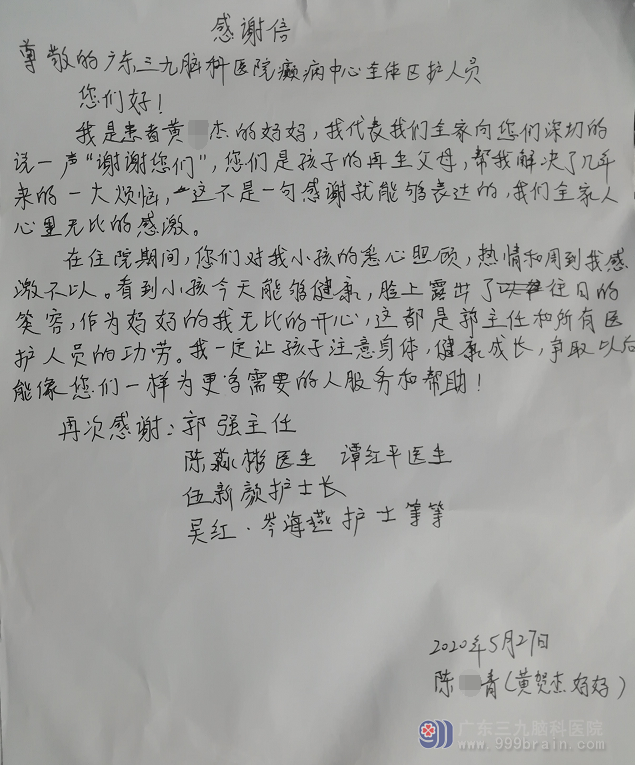 感谢信
尊敬的广东三九脑科医院癫痫中心全体医护人员
您们好！
我是患者黄 杰的妈妈，我代表我们全家向您们深切的
说一声“谢谢您们”，您们是孩子的再生父母，帮我解决了几年
来的一大烦恼，这不是一句感谢就能够表达的，我们全家人
心里无比的感激。
在住院期间，您们对我小孩的悉心照顾，热情和周到我感
激不以。看到小孩今天能够健康，脸上露出了往日的
笑容，作为妈妈的我无比的开心，这都是郭主任和所有医
护人员的功劳。我一定让孩子注意身体，健康成长，争取以后
能像您们一样为更多需要的人服务和帮助！
再次感谢：郭强主任
陈淼彬医生 谭红平医生
伍新颜护士长
吴红．岑海燕护士等等
2020年5月27日
陈 青（黄贺杰妈妈）
广东三九脑科医院
www.999brain.com